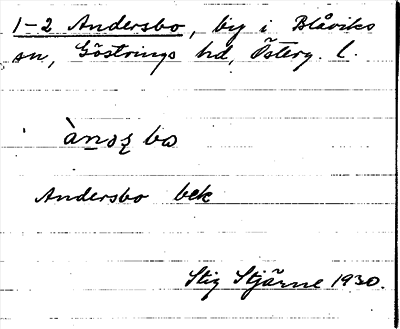 1-2 Andersbo, by i Blåviks
sn, Göstrings hd, Österg. l.
Andersbo bek
Stig Stjärne 1930.